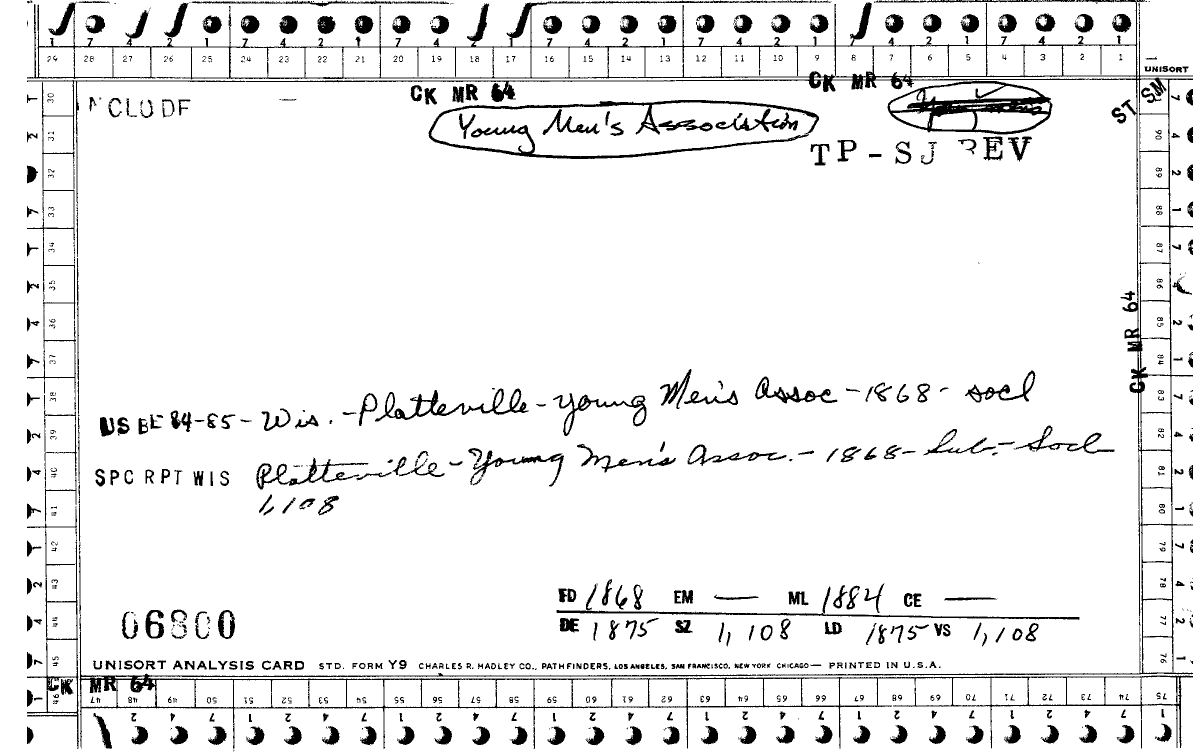 1 7 4 2 1 7 4 2 1 7 4 2 1 7 4 2 1 7 4 2 1 7 4 2 1 7 4 2 1
29 28 27 26 25 24 23 22 21 20 19 18 17 16 15 14 13 12 11 10 9 8 7 6 5 4 3 2 1
UNISORT
CK MR 64
CK MR 64
ST SM
NCLODF —
Young Men's Association
TP-SJ REV
CK MR 64
US BE 84-85 - Wis. - Platteville - Young Men's Assoc - 1868 - socl
SPC RPT WIS Platteville - Young Men's Assoc. - 1868 - Sub. - Socl
1,108
FD 1868 EM — ML 1884 CE —
06800 DE 1875 SZ 1,108 LD 1875 VS 1,108
UNISORT ANALYSIS CARD STD. FORM Y9 CHARLES R. HADLEY CO., PATHFINDERS, LOS ANGELES, SAN FRANCISCO, NEW YORK CHICAGO — PRINTED IN U.S.A.
CK MR 64
30 31 32 33 34 35 36 37 38 39 40 41 42 43 44 45 46
90 89 88 87 86 85 84 83 82 81 80 79 78 77 76
47 48 49 50 51 52 53 54 55 56 57 58 59 60 61 62 63 64 65 66 67 68 69 70 71 72 73 74 75